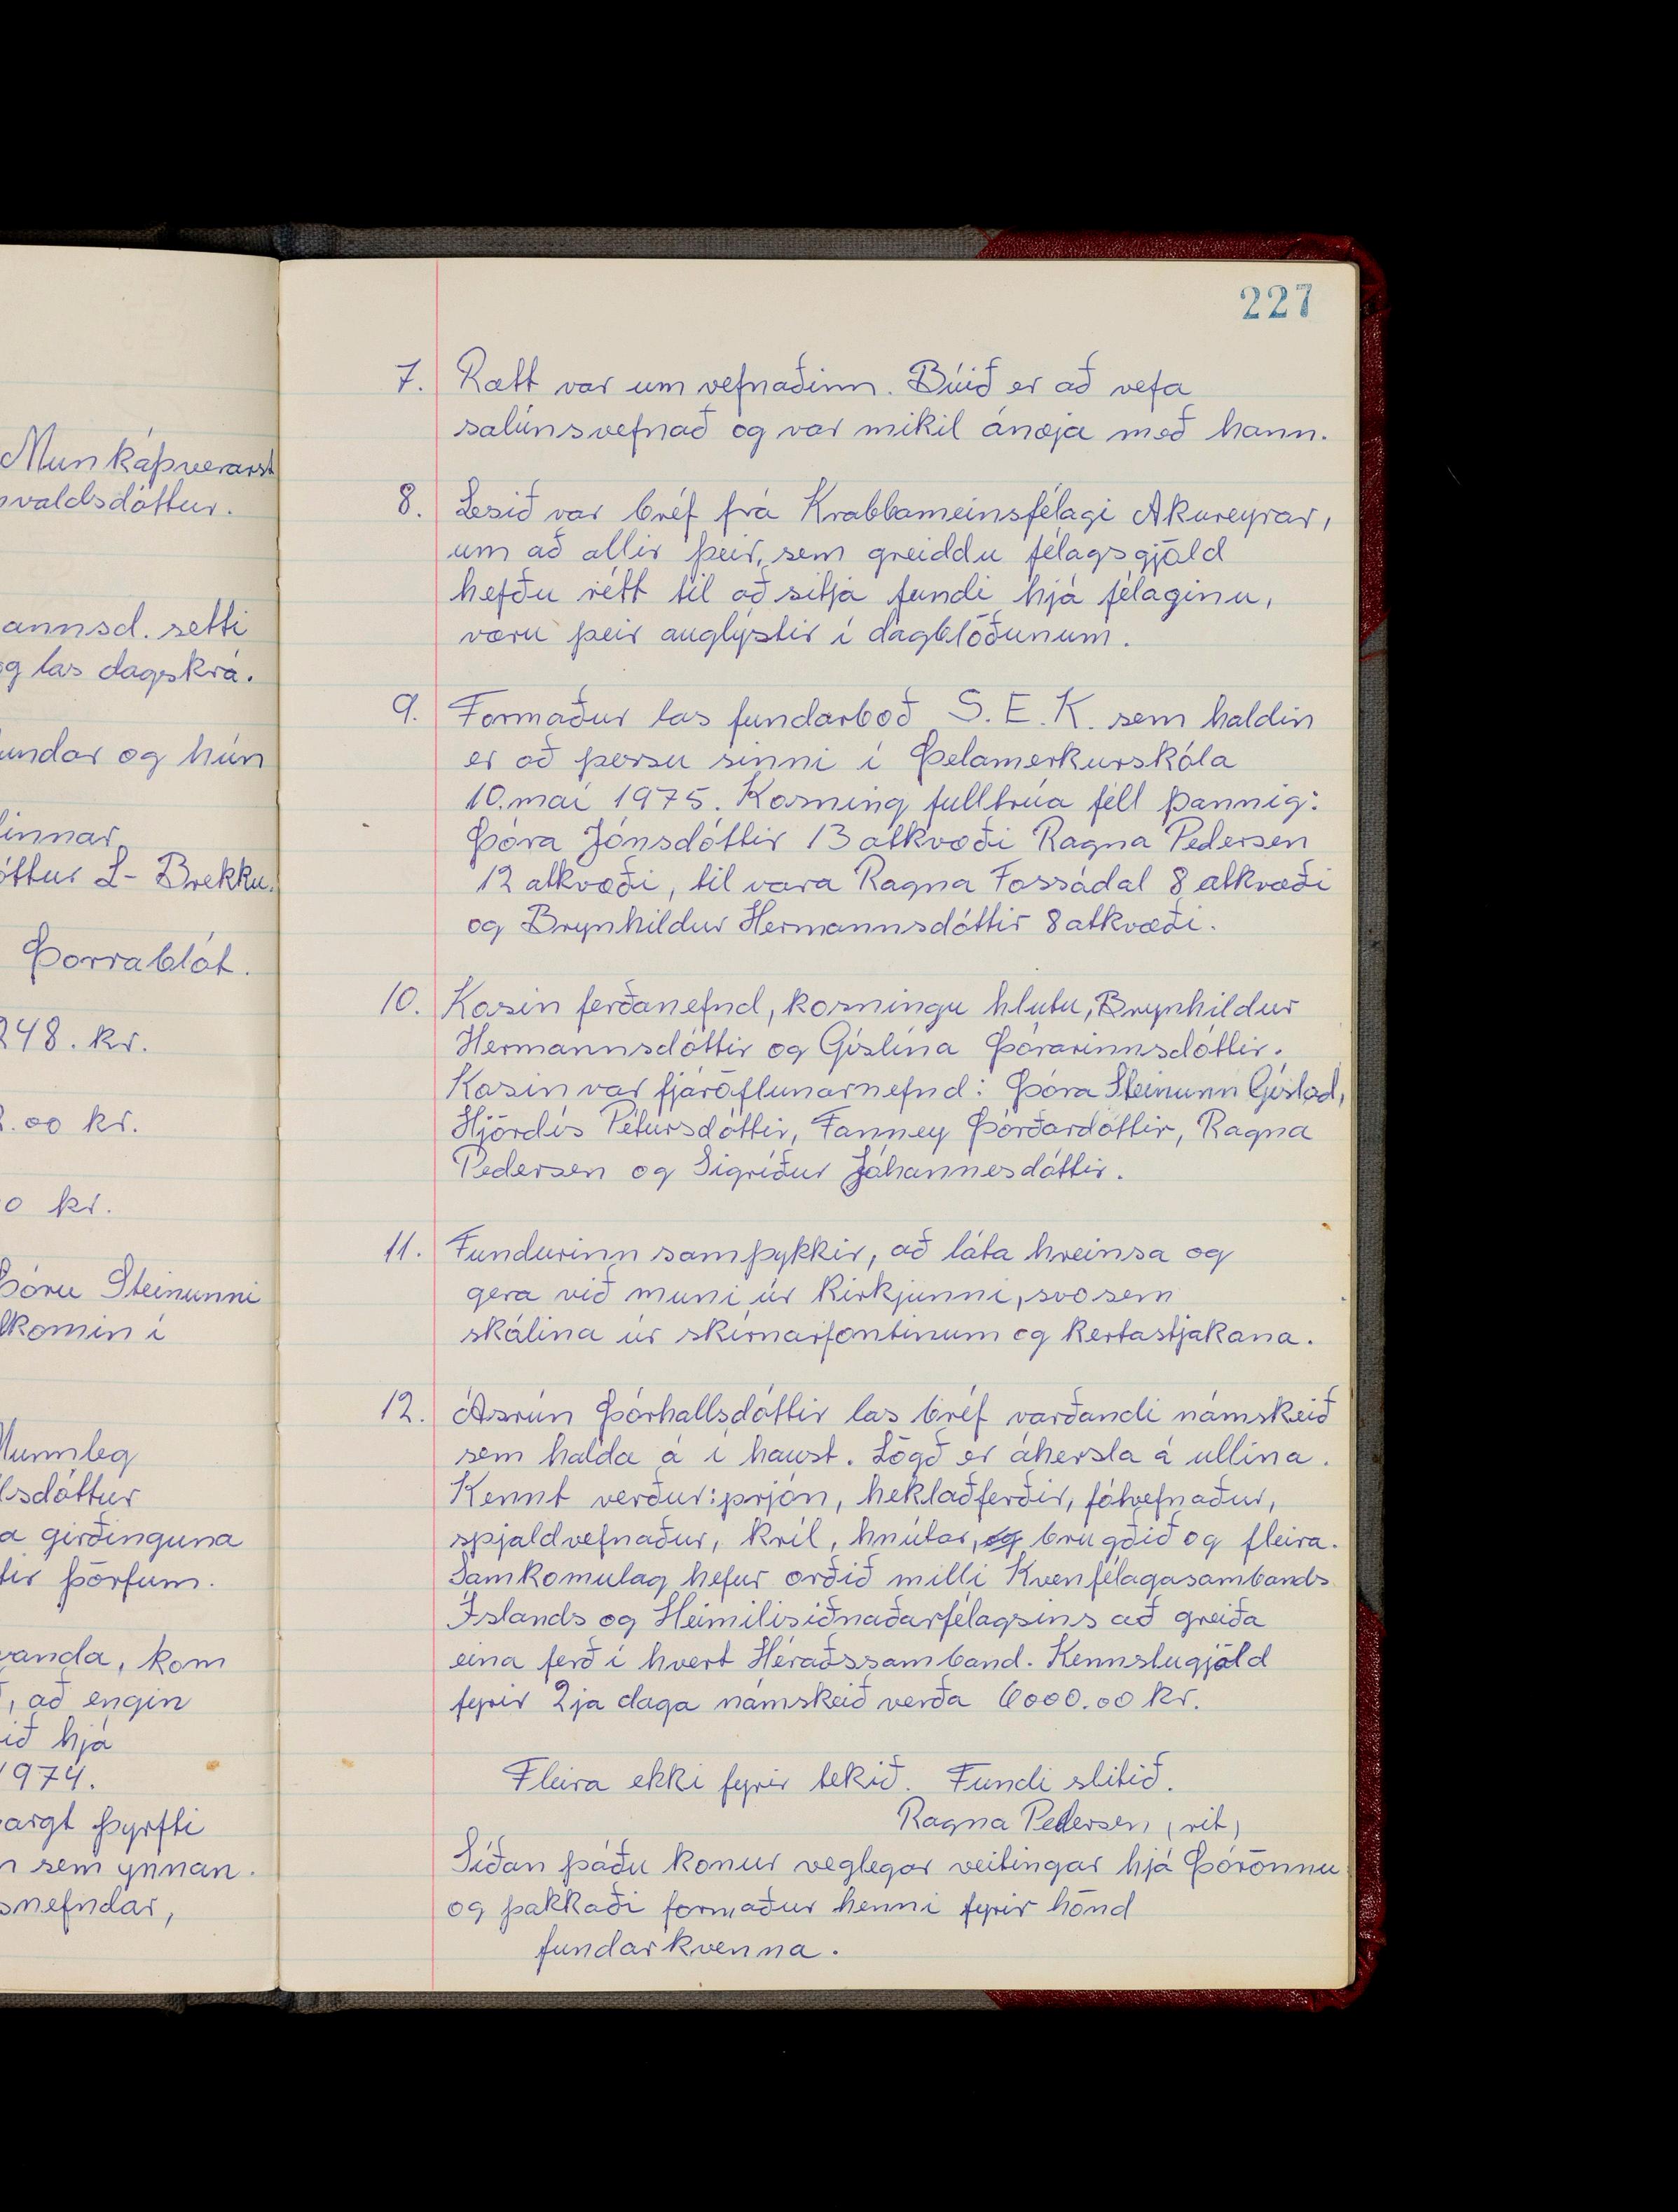 Munkaþverarst
valdsdóttur.
annsd. setti
og las dagskrá.
undar og hún
innar
óttur L- Brekku.
Þorrablót.
248. kr.
.00 kr.
0 kr.
Þóru Steinunni
lkomin í
Munnleg
lsdóttur
a girðinguna
tir þörfum.
vanda, kom
, að engin
ið hjá
1974.
argt þyrfti
n sem ynnan.
snefndar,
227
7. Rætt var um vefnaðinn. Búið er að vefa
salúnsvefnað og var mikil ánæja með hann.
8. Lesið var bréf frá Krabbameinsfélagi Akureyrar,
um að allir þeir, sem greiddu félagsgjöld
hefðu rétt til að sitja fundi hjá félaginu,
væru þeir auglýstir í dagblöðunum.
9. Formaður las fundarboð S.E.K. sem haldin
er að þessu sinni í Þelamerkurskóla
10. maí 1975. Kosning fulltrúa féll þannig:
Þóra Jónsdóttir 13 atkvæði Ragna Pedersen
12 atkvæði, til vara Ragna Fossádal 8 atkvæði
og Brynhildur Hermannsdóttir 8 atkvæði.
10. Kosin ferðanefnd, kosningu hlutu, Brynhildur
Hermannsdóttir og Gíslína Þórarinnsdóttir.
Kosin var fjáröflunarnefnd: Þóra Steinunn Gíslad,
Hjördís Pétursdóttir, Fanney Þórðardóttir, Ragna
Pedersen og Sigríður Jóhannesdóttir.
11. Fundurinn samþykkir, að láta hreinsa og
gera við muni úr kirkjunni, svo sem
skálina úr skírnarfontinum og kertastjakana.
12. Ásrún Þórhallsdóttir las bréf varðandi námskeið
sem halda á í haust. Lögð er áhersla á ullina.
Kennt verður: prjón, heklaðferðir, fótvefnaður,
spjaldvefnaður, kríl, hnútar, og brugðið og fleira.
Samkomulag hefur orðið milli Kvenfélagasambands
Íslands og Heimilisiðnaðarfélagsins að greiða
eina ferð í hvert Héraðssamband. Kennslugjöld
fyrir 2ja daga námskeið verða 6000.00 kr.
Fleira ekki fyrir tekið. Fundi slitið.
Ragna Pedersen, (rit)
Síðan þáðu konur veglegar veitingar hjá Þórönnu
og þakkaði formaður henni fyrir hönd
fundarkvenna.